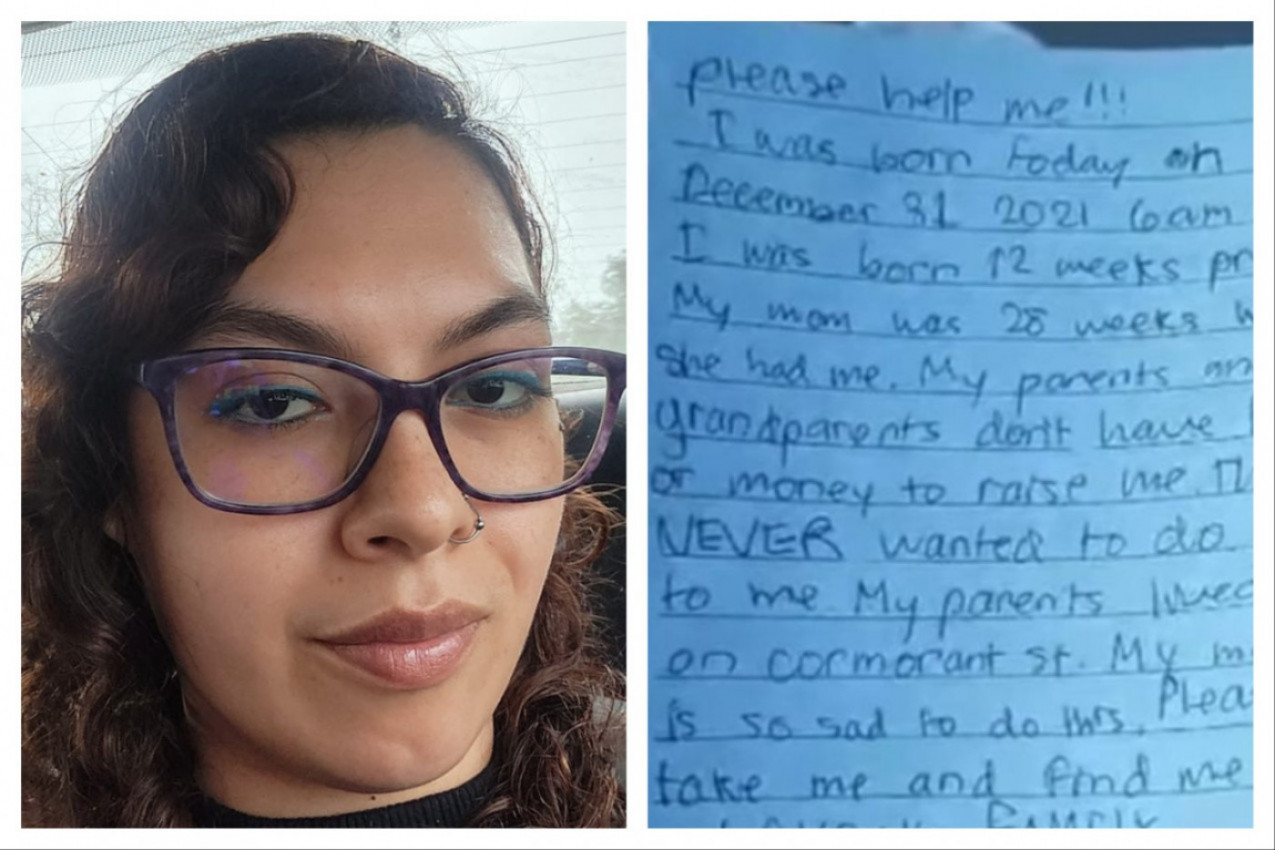 please help me!!!
I was born today on
December 31 2021 6am
I was born 12 weeks pr
My mom was 28 weeks w
she had me. My parents an
grandparents don't have
or money to raise me.
NEVER wanted to do
to me My parents lived
on cormorant st. My m
is so sad to do this. Plea
take me and find me
FAMILY